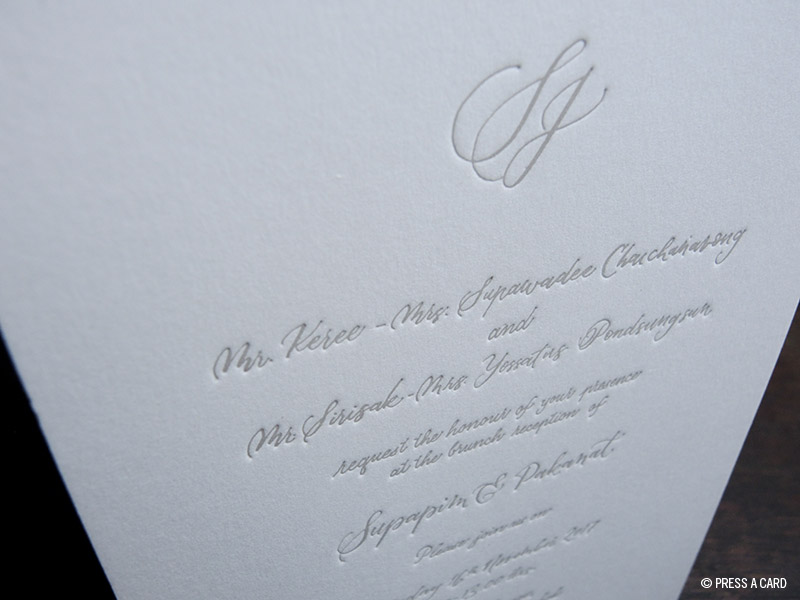 SJ
Mr. Keree - Mrs. Supawadee Chaichanavong
and
Mr. Sirisak - Mrs. Yossatus Pondsungsun
request the honour of your presence
at the brunch reception of
Supapim & Pakanat
Please join us on
November 2017
© PRESS A CARD